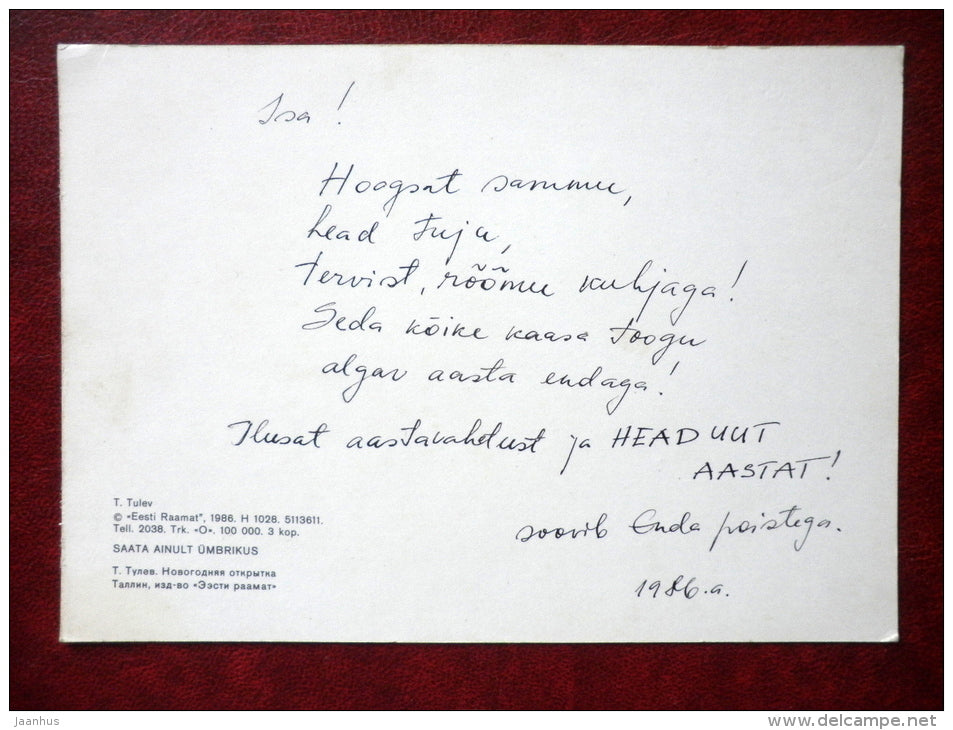 Isa!
Hoogsat sammu,
head tuju,
tervist, rõõmu kuhjaga!
Seda kõike kaasa toogu
algav aasta endaga!
Ilusat aastavahetust ja HEAD UUT
AASTAT!
soovib Enda poistega.
1986.a.
T. Tulev
© «Eesti Raamat", 1986. H 1028. 5113611.
Tell. 2038. Trk. «O». 100 000. 3 kop.
SAATA AINULT ÜMBRIKUS
Т. Тулев. Новогодняя открытка
Таллин, изд-во «Ээсти раамат»
jaanhus
www.delcampe.net